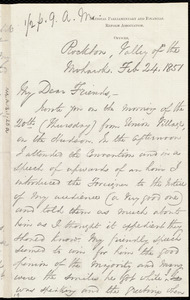 Rockton, Valley of the
Mohawk. Feb 24. 1851
My Dear Friends,—
Wrote you on the morning of the
20th (Thursday) from Union Village
on the Hudson. In the afternoon
I attended the Convention and in a
speech of upwards of an hour I
introduced the Foreigner to the notice of
my audience (a very good one)
and told them as much about
him as I thought it expedient they
should know. My friendly speech
seemed to win for him the good
opinion of the Majority and many
were the smiles he got while I
was speaking and the greetings when